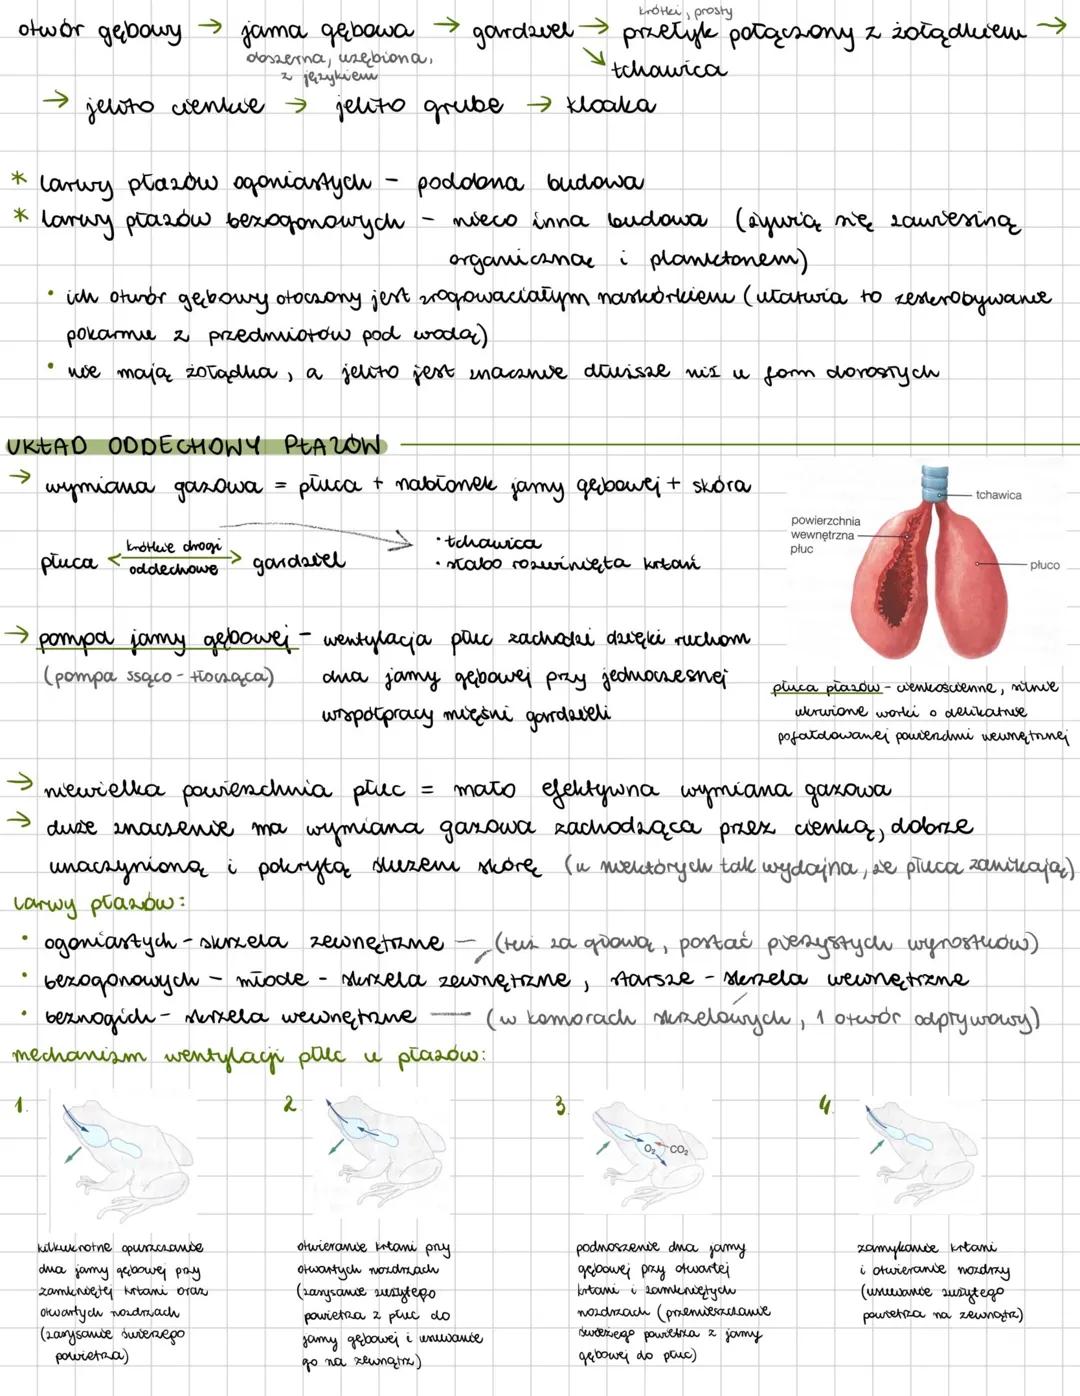 otwór gębowy → jama gębowa → gardziel → przełyk połączony z żołądkiem →
krótki, prosty
obszerna, uzębiona,
z językiem
↘ tchawica
→ jelito cienkie → jelito grube → kloaka
* larwy płazów ogoniastych - podobna budowa
* larwy płazów bezogonowych - nieco inna budowa (żywią się zawiesiną
organiczną i planktonem)
• ich otwór gębowy otoczony jest zrogowaciałym naskórkiem (ułatwia to zeskrobywanie
pokarmu z przedmiotów pod wodą)
• nie mają żołądka, a jelito jest znacznie dłuższe niż u form dorosłych
UKŁAD ODDECHOWY PŁAZÓW
→ wymiana gazowa = płuca + nabłonek jamy gębowej + skóra
płuca ← krótkie drogi oddechowe → gardziel
• tchawica
• słabo rozwinięta krtań
tchawica
powierzchnia
wewnętrzna
płuc
płuco
→ pompa jamy gębowej - wentylacja płuc zachodzi dzięki ruchom
(pompa ssąco-tłocząca) dna jamy gębowej przy jednoczesnej
współpracy mięśni gardzieli
płuca płazów - cienkościenne, silnie
ukrwione worki o delikatnie
pofałdowanej powierzchni wewnętrznej
→ niewielka powierzchnia płuc = mało efektywna wymiana gazowa
→ duże znaczenie ma wymiana gazowa zachodząca przez cienką, dobrze
unaczynioną i pokrytą śluzem skórę (u niektórych tak wydajna, że płuca zanikają)
larwy płazów:
• ogoniastych - skrzela zewnętrzne — (tuż za głową, postać pierzystych wyrostków)
• bezogonowych - młode - skrzela zewnętrzne, starsze - skrzela wewnętrzne
• beznogich - skrzela wewnętrzne — (w komorach skrzelowych, 1 otwór odpływowy)
mechanizm wentylacji płuc u płazów:
1.
2.
3.
4.
O₂
CO₂
kilkukrotne opuszczanie
dna jamy gębowej przy
zamkniętej krtani oraz
otwartych nozdrzach
(zasysanie świeżego
powietrza)
otwieranie krtani przy
otwartych nozdrzach
(zasysanie zużytego
powietrza z płuc do
jamy gębowej i usuwanie
go na zewnątrz)
podnoszenie dna jamy
gębowej przy otwartej
krtani i zamkniętych
nozdrzach (przemieszczanie
świeżego powietrza z jamy
gębowej do płuc)
zamykanie krtani
i otwieranie nozdrzy
(usuwanie zużytego
powietrza na zewnątrz)